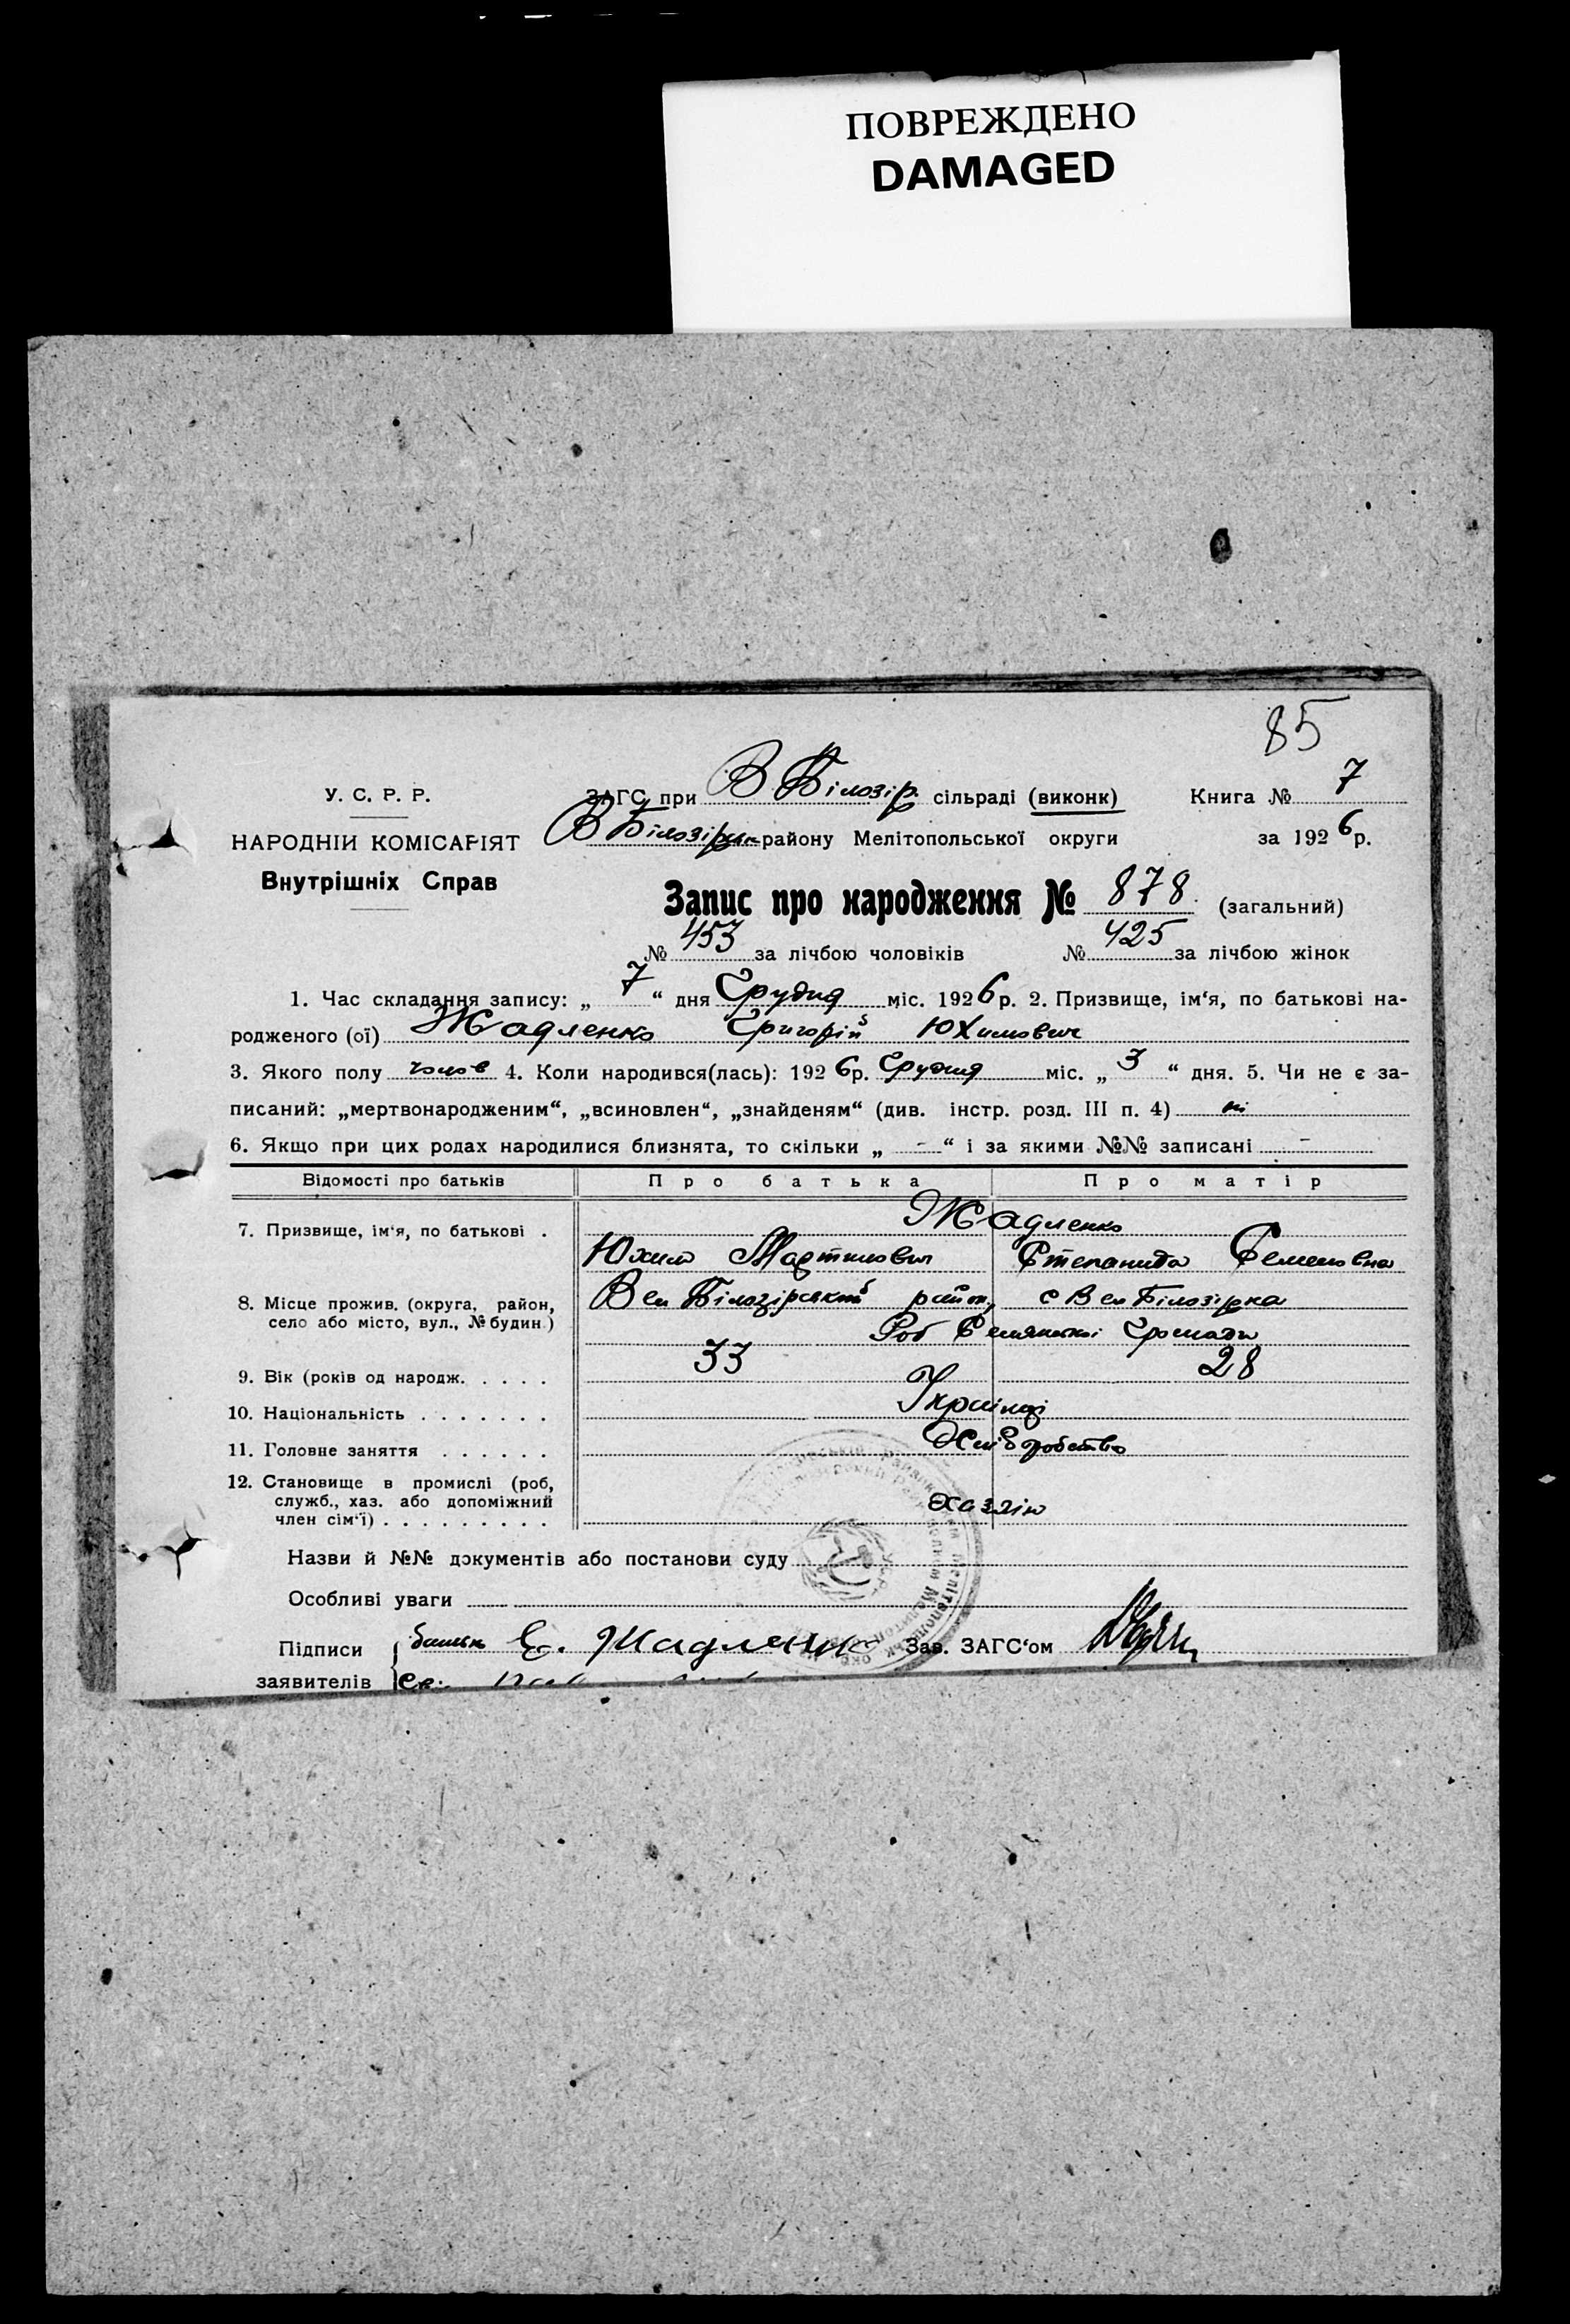 ПОВРЕЖДЕНО
DAMAGED
85
У. С. Р. Р.
ЗАГС при В Білозір. сільраді (виконк) Книга № 7
НАРОДНІЙ КОМІСАРІЯТ
В Білозірськ району Мелітопольської округи за 1926 р.
Внутрішніх Справ
Запис про народження № 878. (загальний)
№ 453 за лічбою чоловіків № 425 за лічбою жінок
1. Час складання запису: „ 7 “ дня Грудня міс. 1926 р. 2. Призвище, ім‘я, по батькові на-
родженого (ої) Жадленко Григорій Юхимович
3. Якого полу чолов 4. Коли народився(лась): 1926 р. Грудня міс. „ 3 “ дня. 5. Чи не є за-
писаний: „мертвонародженим“, „всиновлен“, „знайденям“ (див. інстр. розд. III п. 4) ні
6. Якщо при цих родах народилися близнята, то скільки „ - “ і за якими №№ записані -
Відомості про батьків Про батька Про матір
7. Призвище, ім‘я, по батькові . Жадленко
Юхим Мартинович Степанида Семеновна
8. Місце прожив. (округа, район, село або місто, вул., № будин.) Вел Білозірський район, с Вел Білозірка
Роб Селянської Громади
9. Вік (років од народж. . . . . 33 28
10. Національність . . . . . . . Українці
11. Головне заняття . . . . . . Хліборобство
12. Становище в промислі (роб, служб., хаз. або допоміжний член сім‘ї) . . . . . . . . . Хазяїн
Назви й №№ документів або постанови суду
Особливі уваги
Підписи батьк Е. Жадленко Зав. ЗАГС‘ом
заявителів